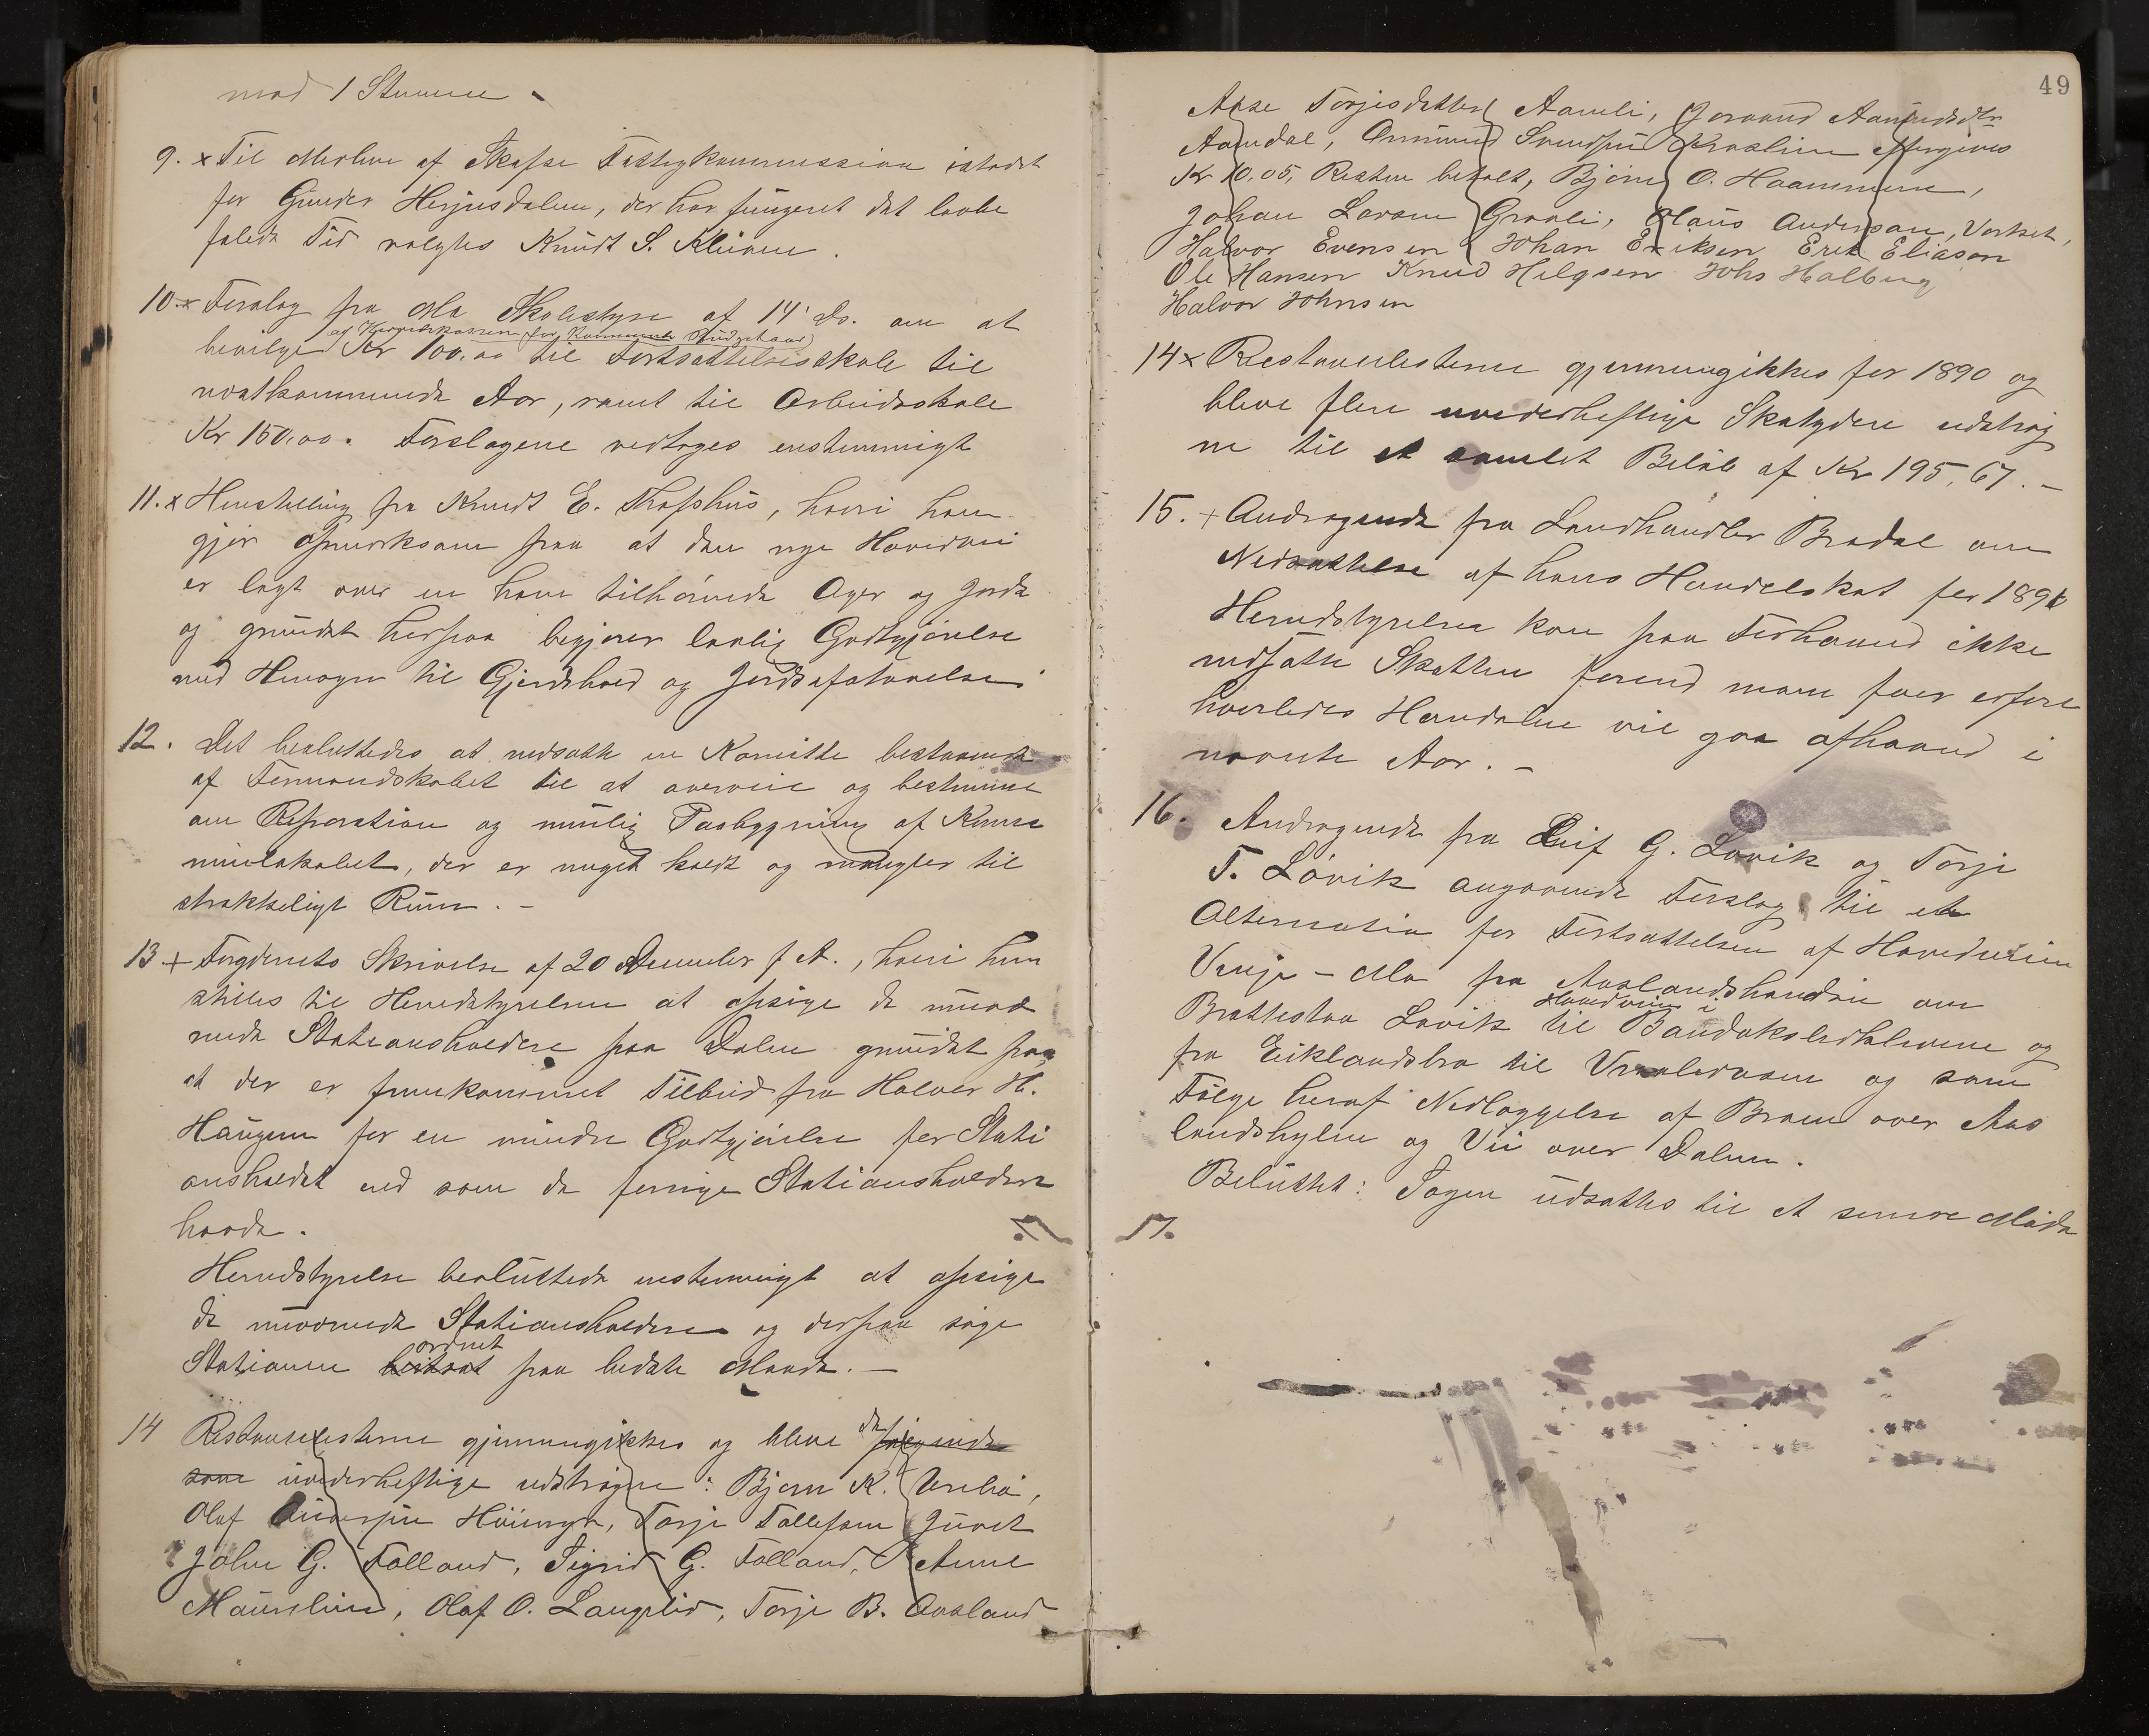 mod 1 Stemme
9. x Til Medlem af Skafse Fattigkommission istedet
for Gunder Herjusdalen, der har fungeret det lovbe
falede Tid valgtes Knudt S. Kleiven.
10. x Forslag fra Mo Skolestyre af 14' Ds. om at
af Herredskassen for Kommunens Budgetaar
bevilge Kr 100,00 til Fortsættelsesskole til
næstkommende Aar, samt til Arbeidsskole
Kr 150,00. Forslagene vedtoges enstemmigt
11. x Henstilling fra Knudt E. , hvori han
gjør opmærksom paa at den nye Hovedvei
er lagt over en ham tilhørende Ager og Jorde
og grundet herpaa begjærer lovlig Godtgjørelse
med Hensyn til Gjerdehold og Jordsafstaaelse
12. Det besluttedes at nedsætte en Komitte bestaaende
af Formandskabet til at overveie og bestemme
om Reparation og mulig Paabygning af Komu
nelokalet, der er meget koldt og mangler til
strækkeligt Rum. -
13 + Fogderiets Skrivelse af 20 December f A., hvori hen
stilles til Herredstyrelsen at opsige de nuvæ
rende Stationsholdere paa Dalen grundet paa,
at der er fremkommet Tilbud fra Halvor H.
Haugen for en mindre Godtgjørelse for Stati
onsholdet end som de forrige Stationsholdere
havde.
Herredstyrelse besluttede enstemmigt at opsige
de nuværende Stationsholdere og derpaa søge
ordnet
Stationen bortsat paa bedste Maade. -
14 Restancelisterne gjennemgikkes og bleve de følgende
som uvederheftige udstrøgne: Bjorn K. Urebø,
Olaf , Torje Tallefsen Juvet
John G. Folland, Sigrid G. Folland, Anne
, Olaf O. Langelid, Torje B. Aasland
49
Aase Torjesdatter Aamli, Joraand Aanundsdtr
Aamdal, Svendsen eftergives
Kr 10,05, Resten betalt, Bjørn O. Haammeren,
Johan Larsen Graali, Olaus Anderson, Verket,
Halvor Evensen Johan Eriksen Erik Eliason
Ole Hansen Knud Helgsen Johs Halberg
Halvor Johnsen
14 x Restancelisterne gjennemgikkes for 1890 og
bleve flere uvederheftige Skatydere udstrøg
ne til et samlet Beløb af Kr 195,67. -
15. + Andragende fra Landhandler Bradal om
Nedsættelse af hans Handelskat for 1891
Herredstyrelsen kan paa Forhaand ikke
nedsætte Skatten forend man faar erfare
hvorledes Handelen vil gaa afhaand i
nævnte Aar. -
16. Andragende fra Leif G. Løvik og Torje
T. Løvik angaaende Forslag til et
Alternativ for Fortsættelsen af Hovedveien
Vinje - Mo fra Aaslandshandn om
Hovedveien i
Brattestaa Løvik til Bandakslidkleivene og
fra Eiklandsbro til Vraaledvasen og som
Følge heraf Nedlæggelse af Broen over Aas
landshylen og Vei over Dalen.
Belutted: Sagen udsættes til et senere Møde
17.